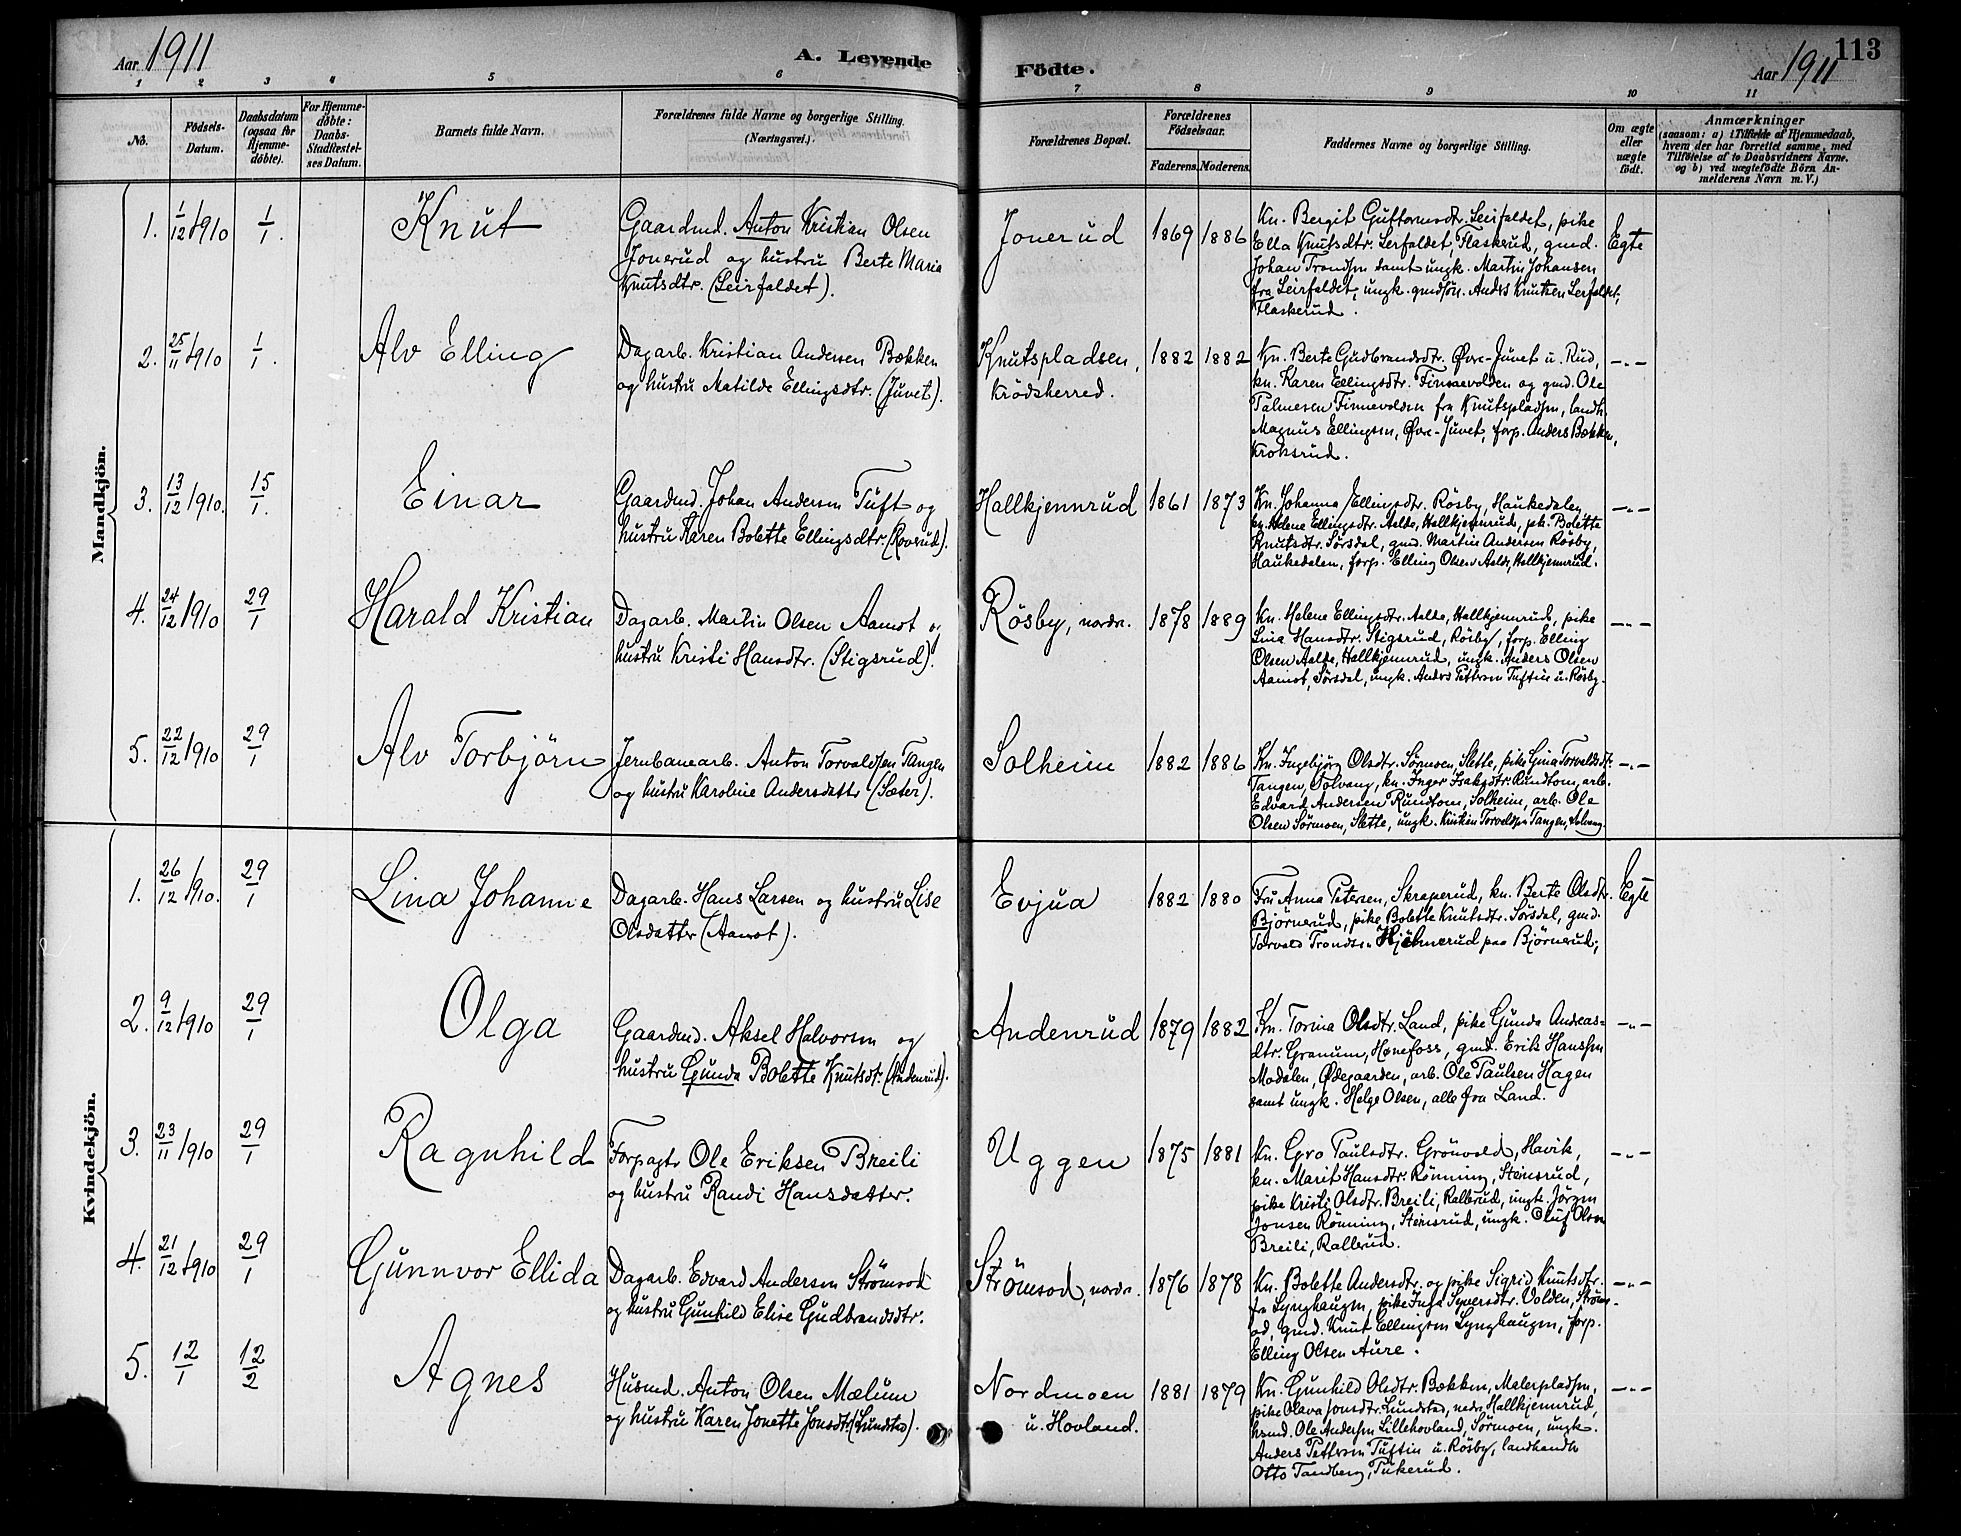 Aar 1911
A. Levende
Födte.
Aar 1911
113
1 2 3 4 5 6 7 8 9 10 11
No.
Födsels-
Datum.
Daabsdatum
(ogsaa for
Hjemme-
döbte).
For Hjemme-
döbte:
Daabs-
Stadfæstel-
ses Datum.
Barnets fulde Navn.
Forældrenes fulde Navne og borgerlige Stilling.
(Næringsvei.)
Forældrenes Bopæl.
Forældrenes
Födselsaar.
Faderens. Moderens.
Faddernes Navne og borgerlige Stilling.
Om ægte
eller
uægte
født.
Anmærkninger
(saasom: a) i Tilfælde af Hjemmedaab,
hvem der har forrettet samme, med
Tilföielse af to Daabsvidners Navne.
og b) ved uægtefödte Börn An-
melderens Navn m. V.)
Mandkjön.
1. 1/12 1910 1/1. Knut
Gaardmd. Anton Kristian Olsen
Jonerud og hustru Berte Maria
Knutsdtr. (Leirfaldet).
Jonerud 1869 1886
Kn. Bergit Guttormsdtr. Leirfaldet, pike
Ella Knutsdtr. Leirfaldet, Flaskerud, gmd.
Johan Trondsen samt ungk. Martin Johansen
fra Leirfaldet, ungk. gmdsön. Anders Knutsen Leirfaldet,
Flaskerud.
Egte
2. 25/11 1910 1/1. Alv Elling
Dagarb. Kristian Andersen Bækken
og hustru Matilde Ellingsdtr. (Juvet).
Knutspladsen,
Krödsherred.
1882 1882
Kn. Berte Gudbrandsdtr. Øvre-Juvet u. Rud,
kn. Karen Ellingsdtr. Finnevolden og gmd. Ole
Palmesen Finnevolden fra Knutspladsen, landh.
Magnus Ellingsen, Øvre-Juvet, forp. Anders Bækken,
Kroksrud.
-"-
3. 13/12 1910. 15/1. Einar
Gaardmd. Johan Andersen Tuft og
hustru Karen Bolette Ellingsdtr. (Rovrud).
Hallkjennrud 1861 1873
Kn. Johanna Ellingsdtr. Rösby, Haukedalen,
kn. Helene Ellingsdtr. Aslde, Hallkjennrud, pk. Bolette
Knutsdtr. Sörsdal, gmd. Martin Andersen Rösby,
Haukedalen, forp. Elling Olsen Aslde, Hallkjennrud.
-"-
4. 24/12 1910 29/1 Harald Kristian
Dagarb. Martin Olsen Aamot og
hustru Kristi Hansdtr. (Stigsrud).
Rösby, nordr. 1878 1889
Kn. Helene Ellingsdtr. Aslde, Hallkjennrud, pike
Lina Hansdtr. Stigsrud, Rösby, forp. Elling
Olsen Aslde, Hallkjennrud, ungk. Anders Olsen
Aamot, Sörsdal, ungk. Anders Pettersen Tuftin u. Rösby.
-"-
5. 22/12 1910 29/1 Alv Torbjörn
Jernbanearb. Anton Torvaldsen Tangen
og hustru Karoline Andersdatter (Sæter).
Solheim 1882 1886
Kn. Ingebjörg Olsdtr. Sörmoen, Slette, pike Gina Torvaldsdtr.
Tangen, Solvang, kn. Inger Isaksdtr. Rundtom, arb.
Edvard Andersen Rundtom, Solheim, arb. Ole
Olsen Sörmoen, Slette, ungk. Kristian Torvaldsen Tangen, Solvang.
-"-
Kvindekjön.
1. 26/12 1910. 29/1 Lina Johanne
Dagarb. Hans Larsen og hustru Lise
Olsdatter (Aamot).
Evjua 1882 1880
Fru Anna Petersen, Skraperud, kn. Berte Olsdtr.
Björnerud, pike Bolette Knutsdtr. Sörsdal, gmd.
Torvald Trondsen Hjelmerud paa Björnerud;
Egte
2. 9/12 1910 29/1 Olga
Gaardmd. Aksel Halvorsen og
hustru Gunda Bolette Knutsdtr. (Andenrud).
Andenrud 1879 1882
Kn. Torina Olsdtr. Land, pike Gunda Andreas=
dtr. Granum, Hønefoss, gmd. Erik Hanssen
Modalen, Ødegaarden, arb. Ole Paulsen Hagen
samt ungk. Helge Olsen, alle fra Land.
-"-
3. 23/11 1910 29/1 Ragnhild
Forpagtr Ole Eriksen Breili
og hustru Randi Hansdatter.
Uggen 1875 1881
Kn. Gro Paulsdtr. Grönvold, Havik,
kn. Marit Hansdtr. Rönning, Stensrud,
pike Kristi Olsdtr. Breili, Rallerud, ungk. Jörgen
Jonsen Rönning, Stensrud, ungk. Oluf Olsen
Breili, Rallerud.
-"-
4. 21/12 1910 29/1 Gunnvor Ellida
Dagarb. Edvard Andersen Strömsod
og hustru Gunhild Elise Gudbrandsdtr.
Strömsod, nordr. 1876 1878
Kn. Bolette Andersdtr. og pike Sigrid Knutsdtr.
fr Lynghaugen, pike Inga Syversdtr. Volden, Ström-
od, gmd. Knut Ellingsen Lynghaugen, forp.
Elling Olsen Aure.
-"-
5. 12/1 12/2 Agnes
Husmd. Anton Olsen Mælum
og hustru Karen Jonette Jonsdtr. (Lundsted).
Nordmoen
u. Hovland.
1881 1879
Kn. Gunhild Olsdtr. Bækken, Malerpladsen,
pike Olava Jonsdtr. Lundsted, nedre Hallkjennrud,
husmd. Ole Andersen Lillehovland, Sörmoen, ungk.
Anders Pettersen Tuftin u. Rösby, landhandler
Otto Tandberg, Tukerud.
-"-